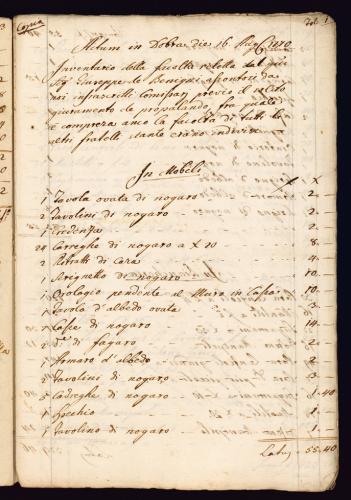 Copia
fol. 1
Actum in Dobra die 16 1770
Inventario della facoltà relitta dal q.
Sig. Giuseppe de Benigni da
noi infrascritti Comissarj previo il solito
giuramento de propalando, fra quali
è compresa anco la facoltà di tutti li
altri fratelli stante erano indivisi
In Mobili
X
1 Tavola ovata di nogaro 2 -
2 Tavolini di nogaro 2 -
1 Credenza 2 -
24 Carreghe di nogaro a X 20 8 -
2 Ritratti di Cera 4 -
1 di nogaro 10 -
1 Orologio pendente al Muro in Cassa 10 -
1 Tavola d'albedo ovata 3 -
Casse di nogaro 14 -
di fagaro 2 -
Armaro d'albedo 2 -
Tavolini di nogaro 3 -
5 Cadreghe di nogaro 1 40
1 Specchio 1 -
Tavolino di nogaro 1 -
Latus 55 40